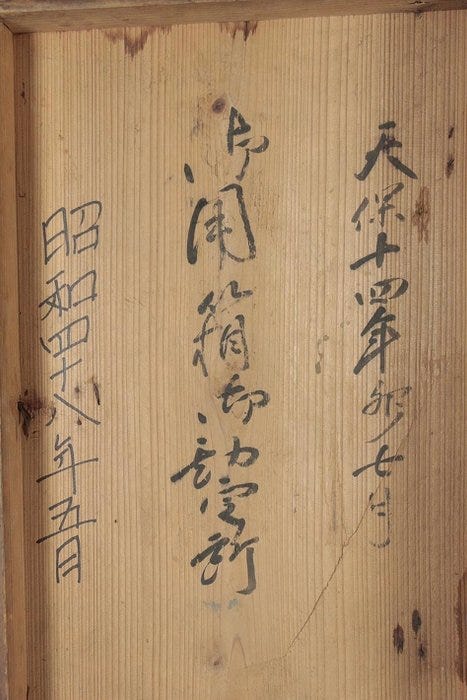 天保十四年卯七月
御用箱御勘定所
昭和四十八年五月